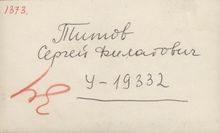 1373.
Титов
Сергей Филатович
У-19332